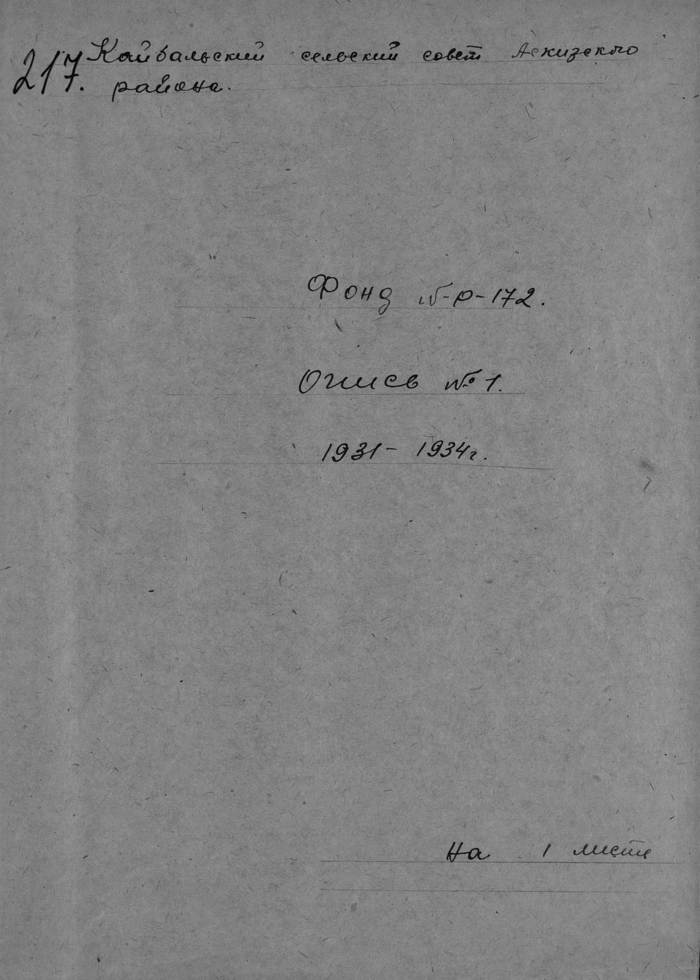 217. Койбальский сельский совет Аскизского
района.
Фонд № р-172.
Опись № 1.
1931 - 1934 г.
На 1 листе